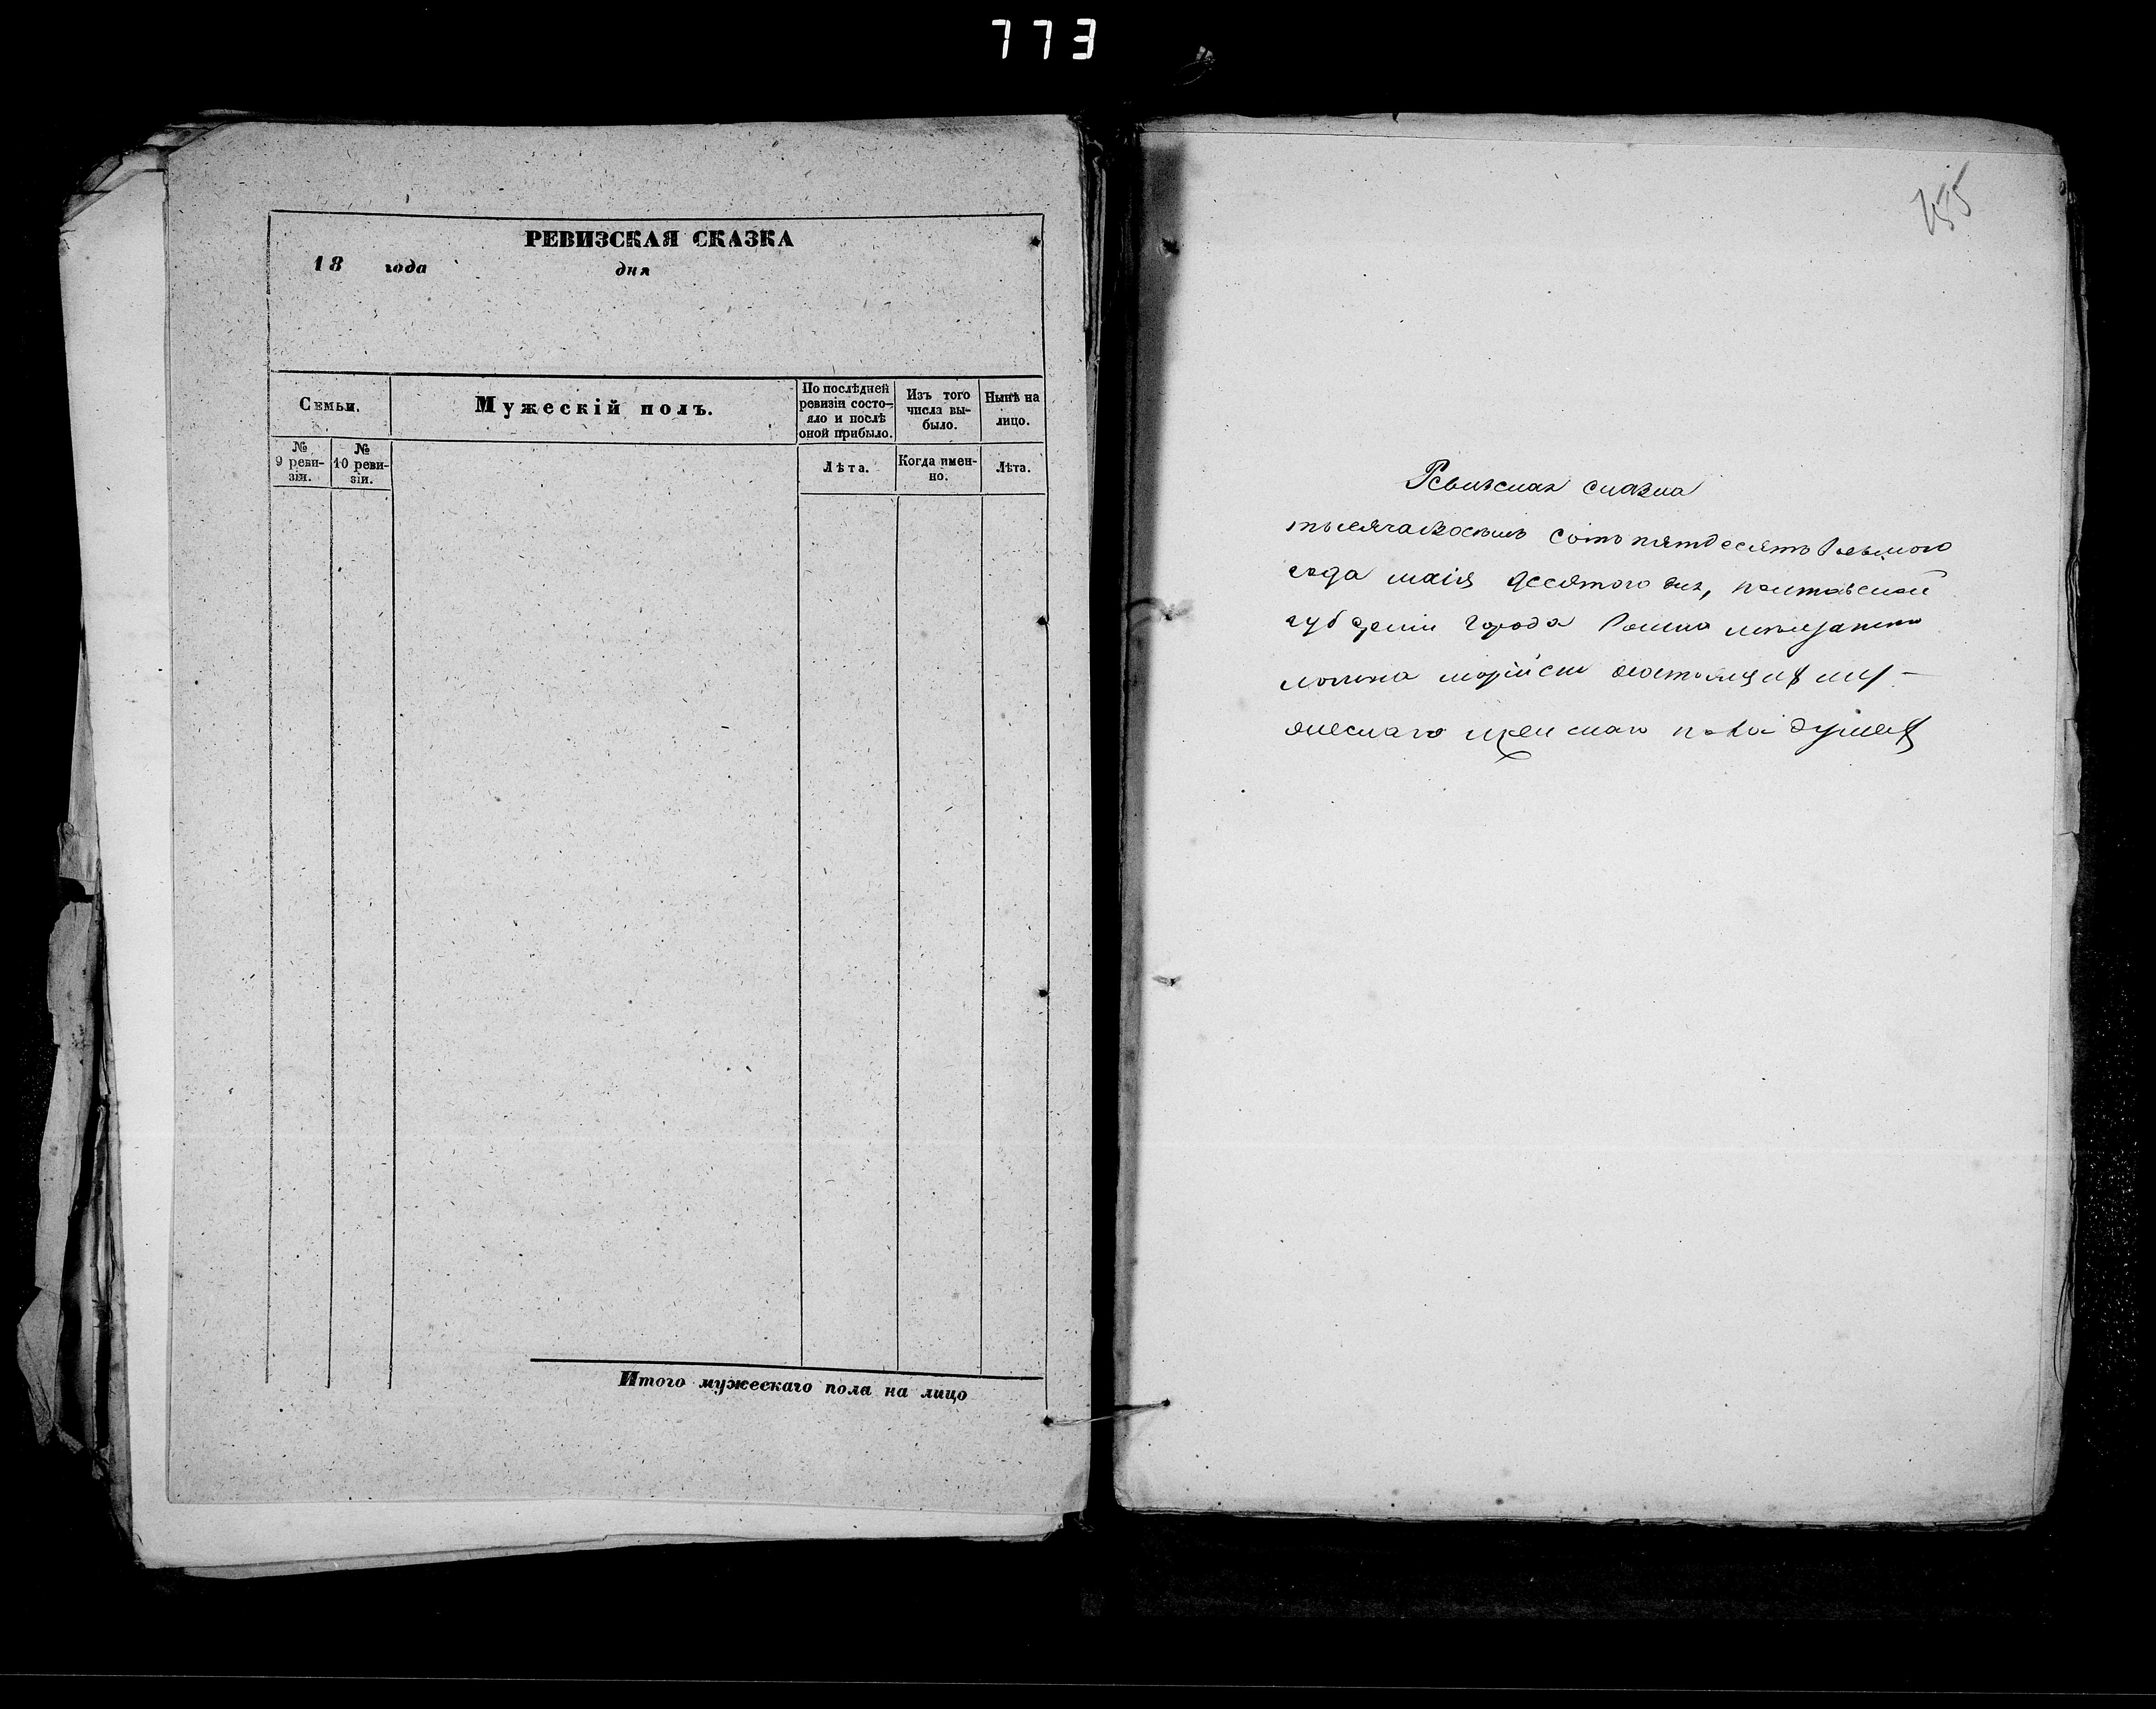 773
РЕВИЗСКАЯ СКАЗКА
18 года дня
Семьи.
Мужескій полъ.
По послѣдней ревизіи состо-
яло и послѣ
оной прибыло.
Изъ того
числа вы-
было.
Нынѣ на
лицо.
№
9 реви-
зіи.
№
10 реви-
зіи.
Лѣта.
Когда имен-
но.
Лѣта.
Итого мужескаго пола на лицо
155
Ревизская сказка
тысяча восемь сотъ пятдесятъ восьмого
года маія десятого дня, полтавской
губерніи города Ромна
душах